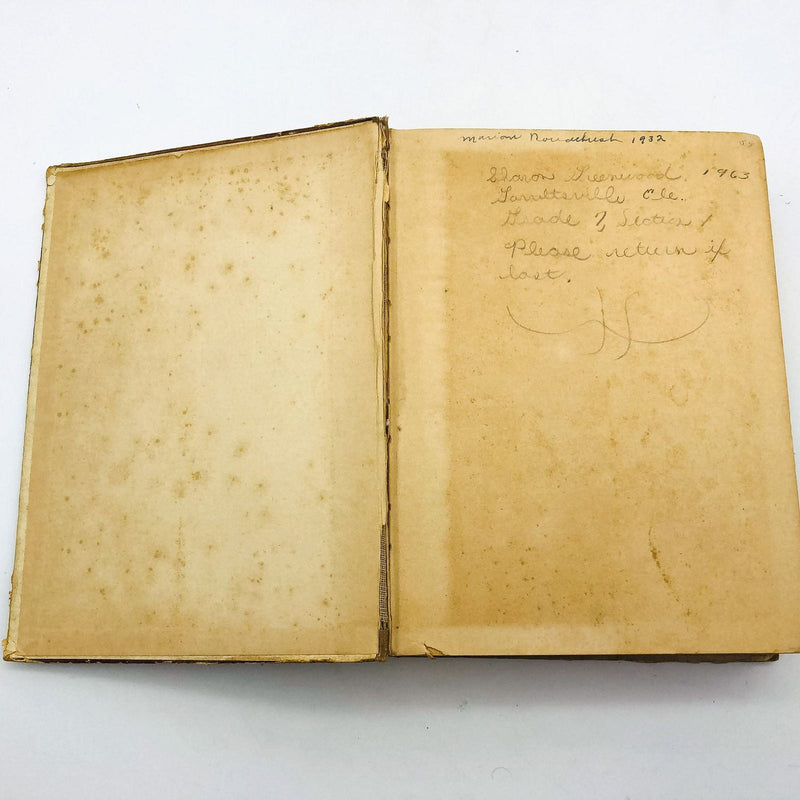 Marion Roudebush 1932
Sharon Greenwood. 1963
Garrettsville Ele.
Grade 7, Section 1
Please return if
lost.